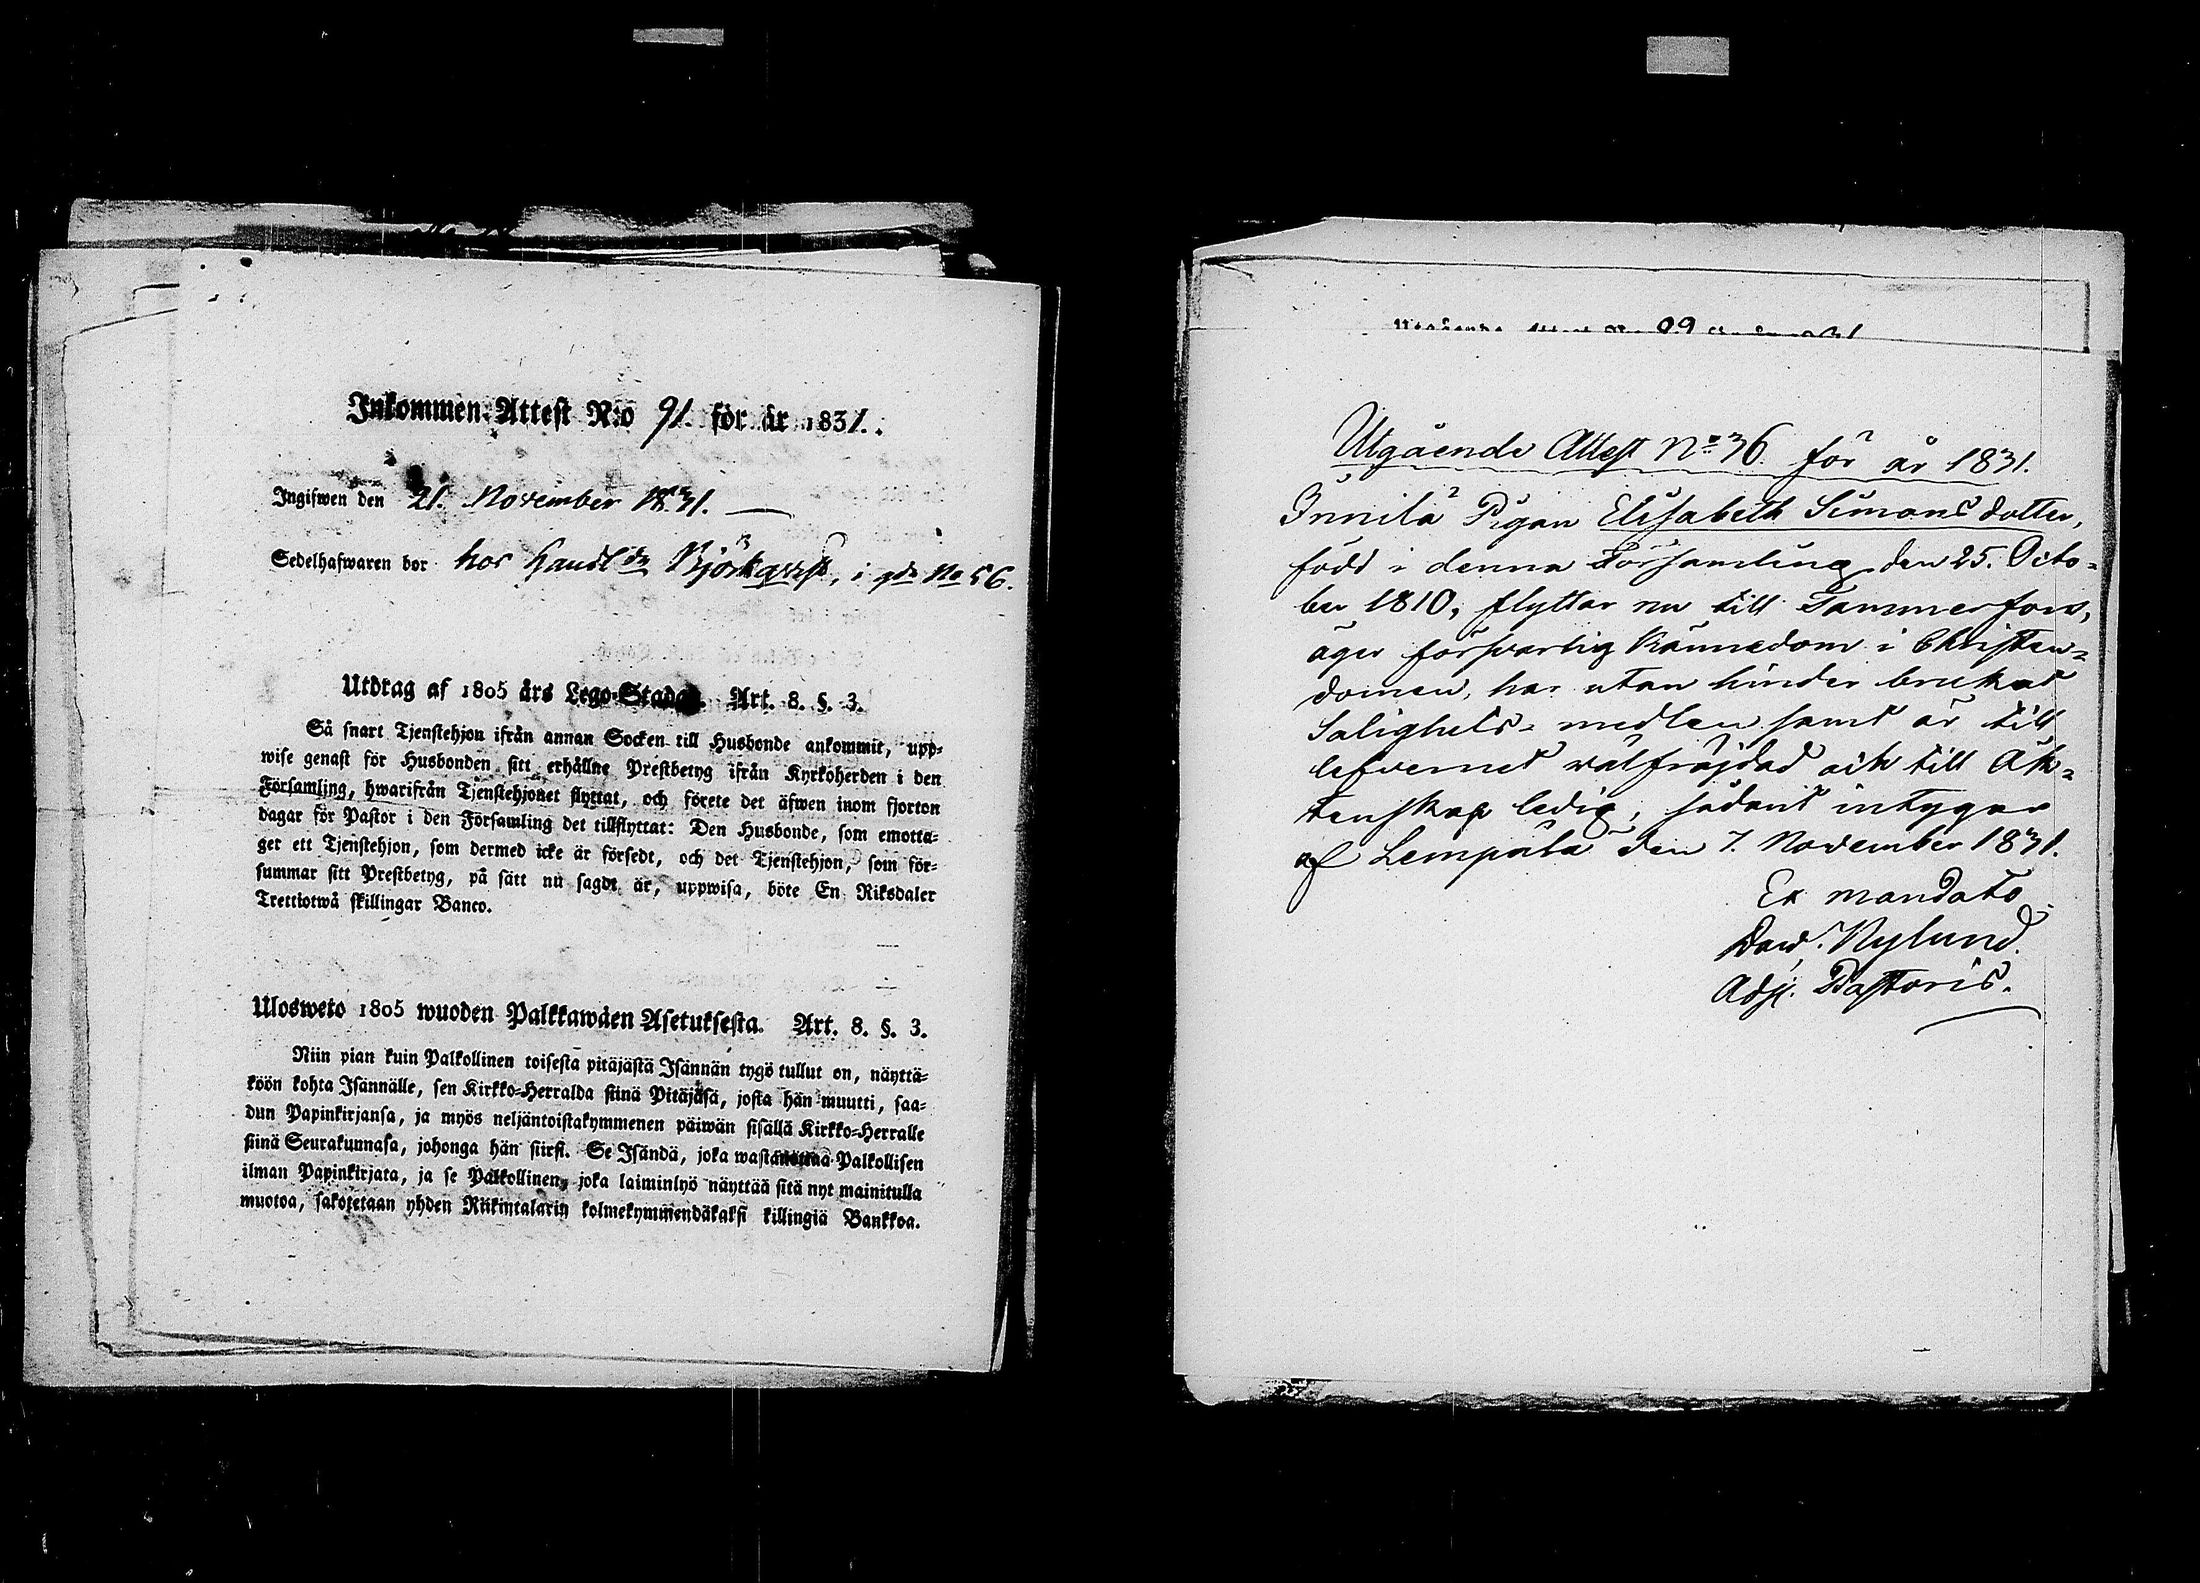 Inkommen Attest N:o 91. för år 1831.
Ingifwen den 21. November 1831.
Sedelhafwaren bor hos Handl:dn Björkqvist, i gdn No 56.
Utdrag af 1805 års Lego-Stadga. Art. 8. §. 3.
Så snart Tjenstehjon ifrån annan Socken till Husbonde ankommit, upp-
wise genast för Husbonden sitt erhållne Prestbetyg ifrån Kyrkoherden i den
Församling, hwarifrån Tjenstehjonet flyttat, och förete det äfwen inom fjorton
dagar för Pastor i den Församling det tillflyttat: Den Husbonde, som emotta-
ger ett Tjenstehjon, som dermed icke är försedt, och det Tjenstehjon, som för-
summar sitt Prestbetyg, på sätt nu sagdt är, uppwisa, böte En Riksdaler
Trettiotwå skillingar Banco.
Ulosweto 1805 wuoden Palkkawäen Asetuksesta. Art. 8. §. 3.
Niin pian kuin Palkollinen toisesta pitäjästä Isännän tygö tullut on, näyttä-
köön kohta Isännälle, sen Kirkko-Herralda siinä Pitäjäsä, josta hän muutti, saa-
dun Papinkirjansa, ja myös neljäntoistakymmenen päiwän sisällä Kirkko-Herralle
siinä Seurakunnasa, johonga hän siirsi. Se Isändä, joka wastanottaa Palkollisen
ilman Papinkirjata, ja se Palkollinen, joka laiminlyö näyttää sitä nyt mainitulla
muotoa, sakotetaan yhden Riikintalarin kolmekymmendäkaksi killingiä Bankkoa.
Utgående Attest No 36. för år 1831.
Innila Pigan Elisabeth Simonsdotter,
född i denna Församling den 25. Octo-
ber 1810, flyttar nu till Tammerfors,
äger försvarlig kännedom i Christen-
domen, har utan hinder brukat
Salighets-medlen samt är till
lefvernet välfräjdad och till Äk-
tenskap ledig; sådant intygar
af Lempälä den 7. November 1831.
Ex mandato
Dav. Nylund.
Adj. Pastoris.